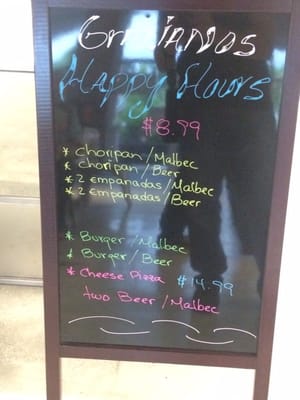 Grazianos
Happy Hours
$8.99
* Choripan/Malbec
* Choripan/Beer
* 2 empanadas/Malbec
* 2 empanadas/Beer
* Burger/Malbec
* Burger/Beer
* Cheese Pizza $14.99
two Beer/Malbec